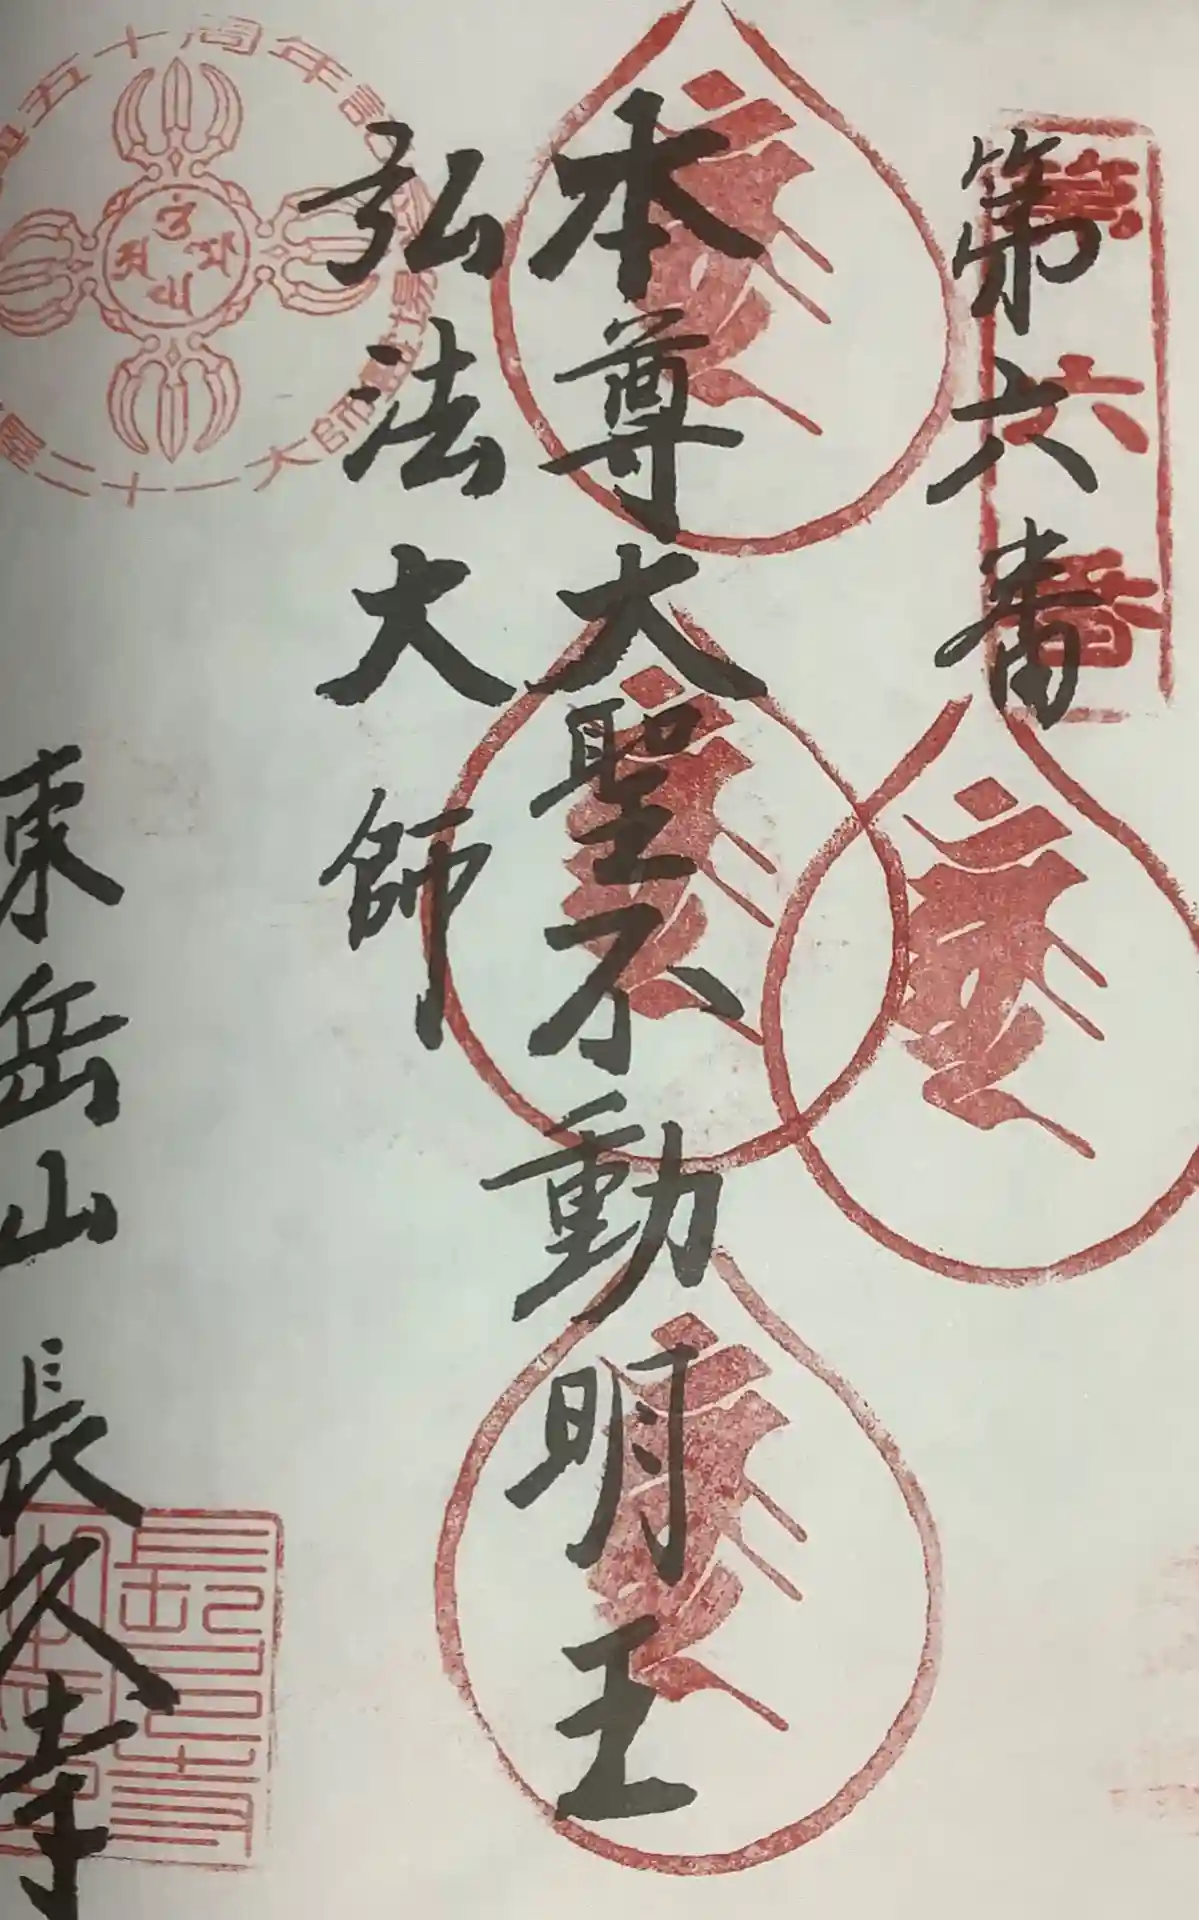 第六番
第六番
本尊大聖不動明王
弘法大師
五十周年記
大師霊場
二十一
東岳山 長久寺